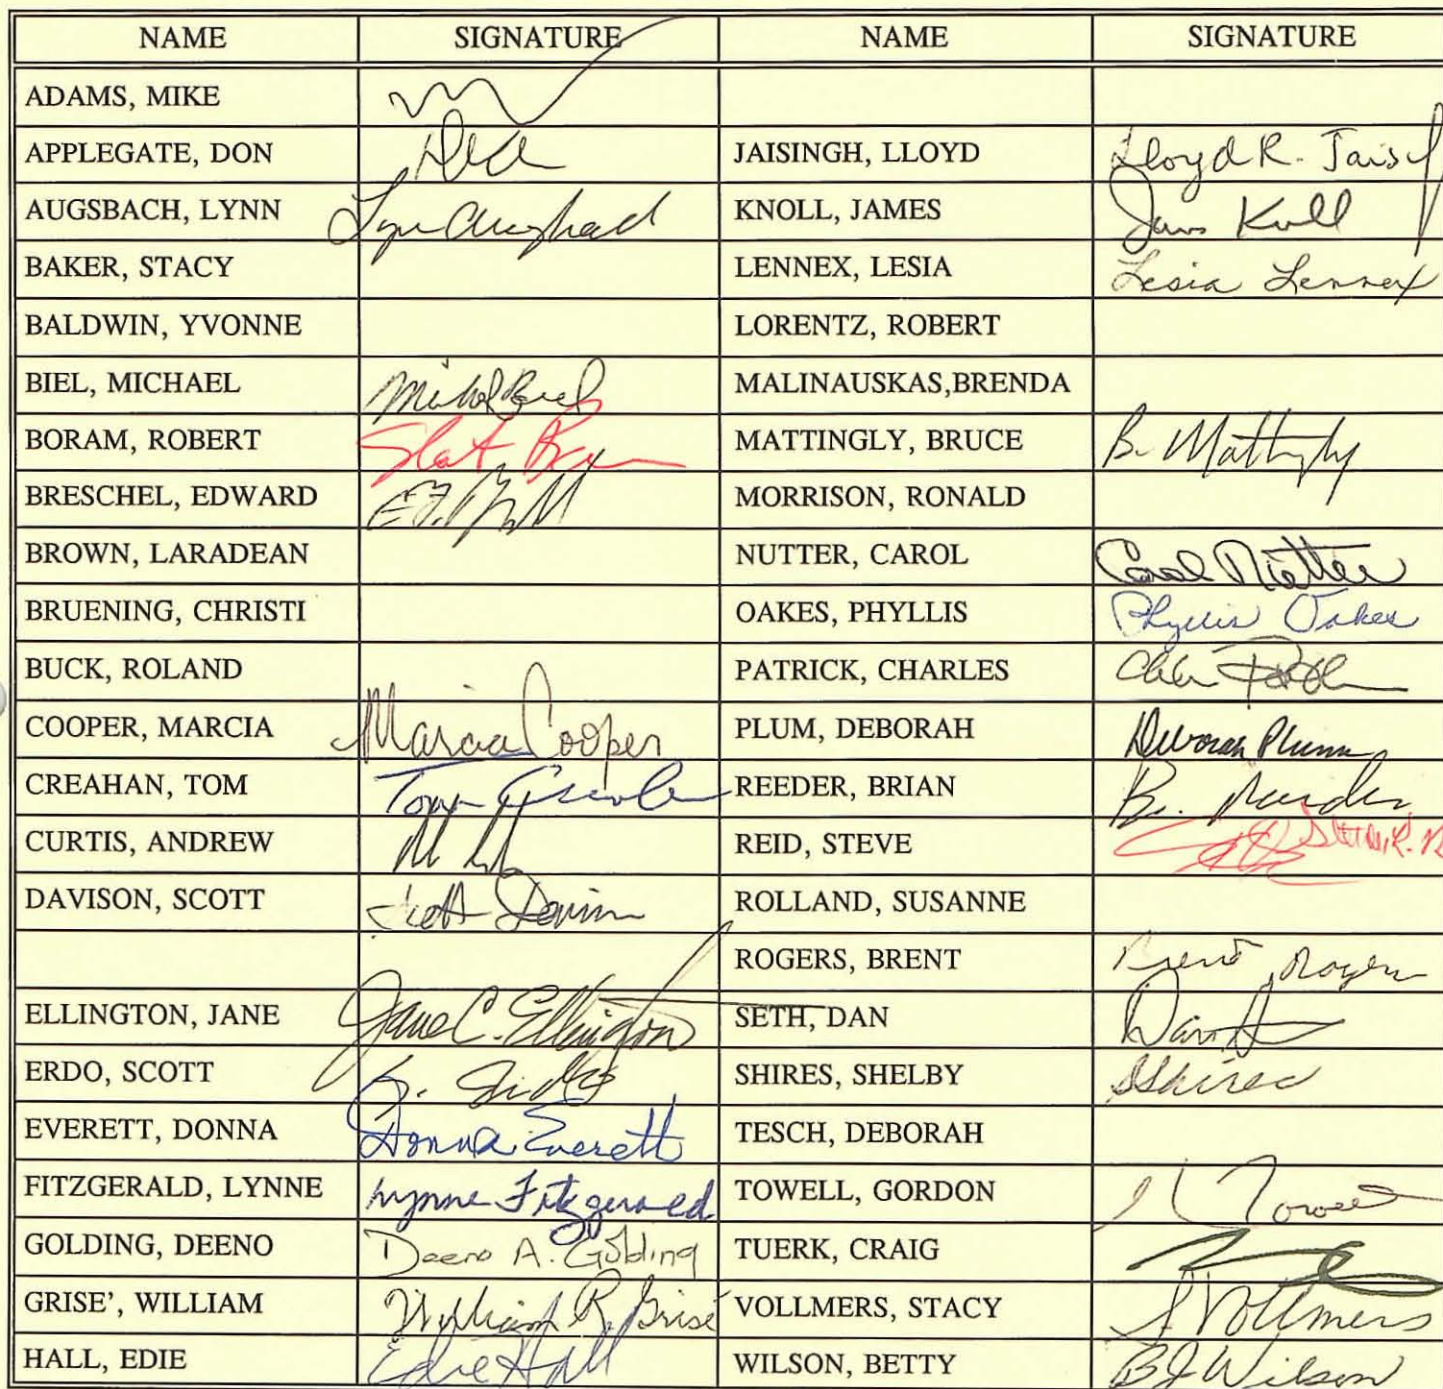 NAME SIGNATURE NAME SIGNATURE
ADAMS, MIKE
APPLEGATE, DON JAISINGH, LLOYD Lloyd R. Jais
AUGSBACH, LYNN KNOLL, JAMES
BAKER, STACY LENNEX, LESIA Lesia Lennex
BALDWIN, YVONNE LORENTZ, ROBERT
BIEL, MICHAEL MALINAUSKAS,BRENDA
BORAM, ROBERT MATTINGLY, BRUCE B. Mattingly
BRESCHEL, EDWARD MORRISON, RONALD
BROWN, LARADEAN NUTTER, CAROL Carol Nutter
BRUENING, CHRISTI OAKES, PHYLLIS Phyllis Oakes
BUCK, ROLAND PATRICK, CHARLES
COOPER, MARCIA Marcia Cooper PLUM, DEBORAH Deborah Plum
CREAHAN, TOM Tom Creahan REEDER, BRIAN B. Reeder
CURTIS, ANDREW REID, STEVE
DAVISON, SCOTT Scott Davison ROLLAND, SUSANNE
ROGERS, BRENT Brent Rogers
ELLINGTON, JANE Jane C. Ellington SETH, DAN
ERDO, SCOTT SHIRES, SHELBY SShires
EVERETT, DONNA Donna Everett TESCH, DEBORAH
FITZGERALD, LYNNE Lynne Fitzgerald TOWELL, GORDON Towell
GOLDING, DEENO Deeno A. Golding TUERK, CRAIG
GRISE', WILLIAM William R. Grisé VOLLMERS, STACY S Vollmers
HALL, EDIE Edie Hall WILSON, BETTY BJ Wilson